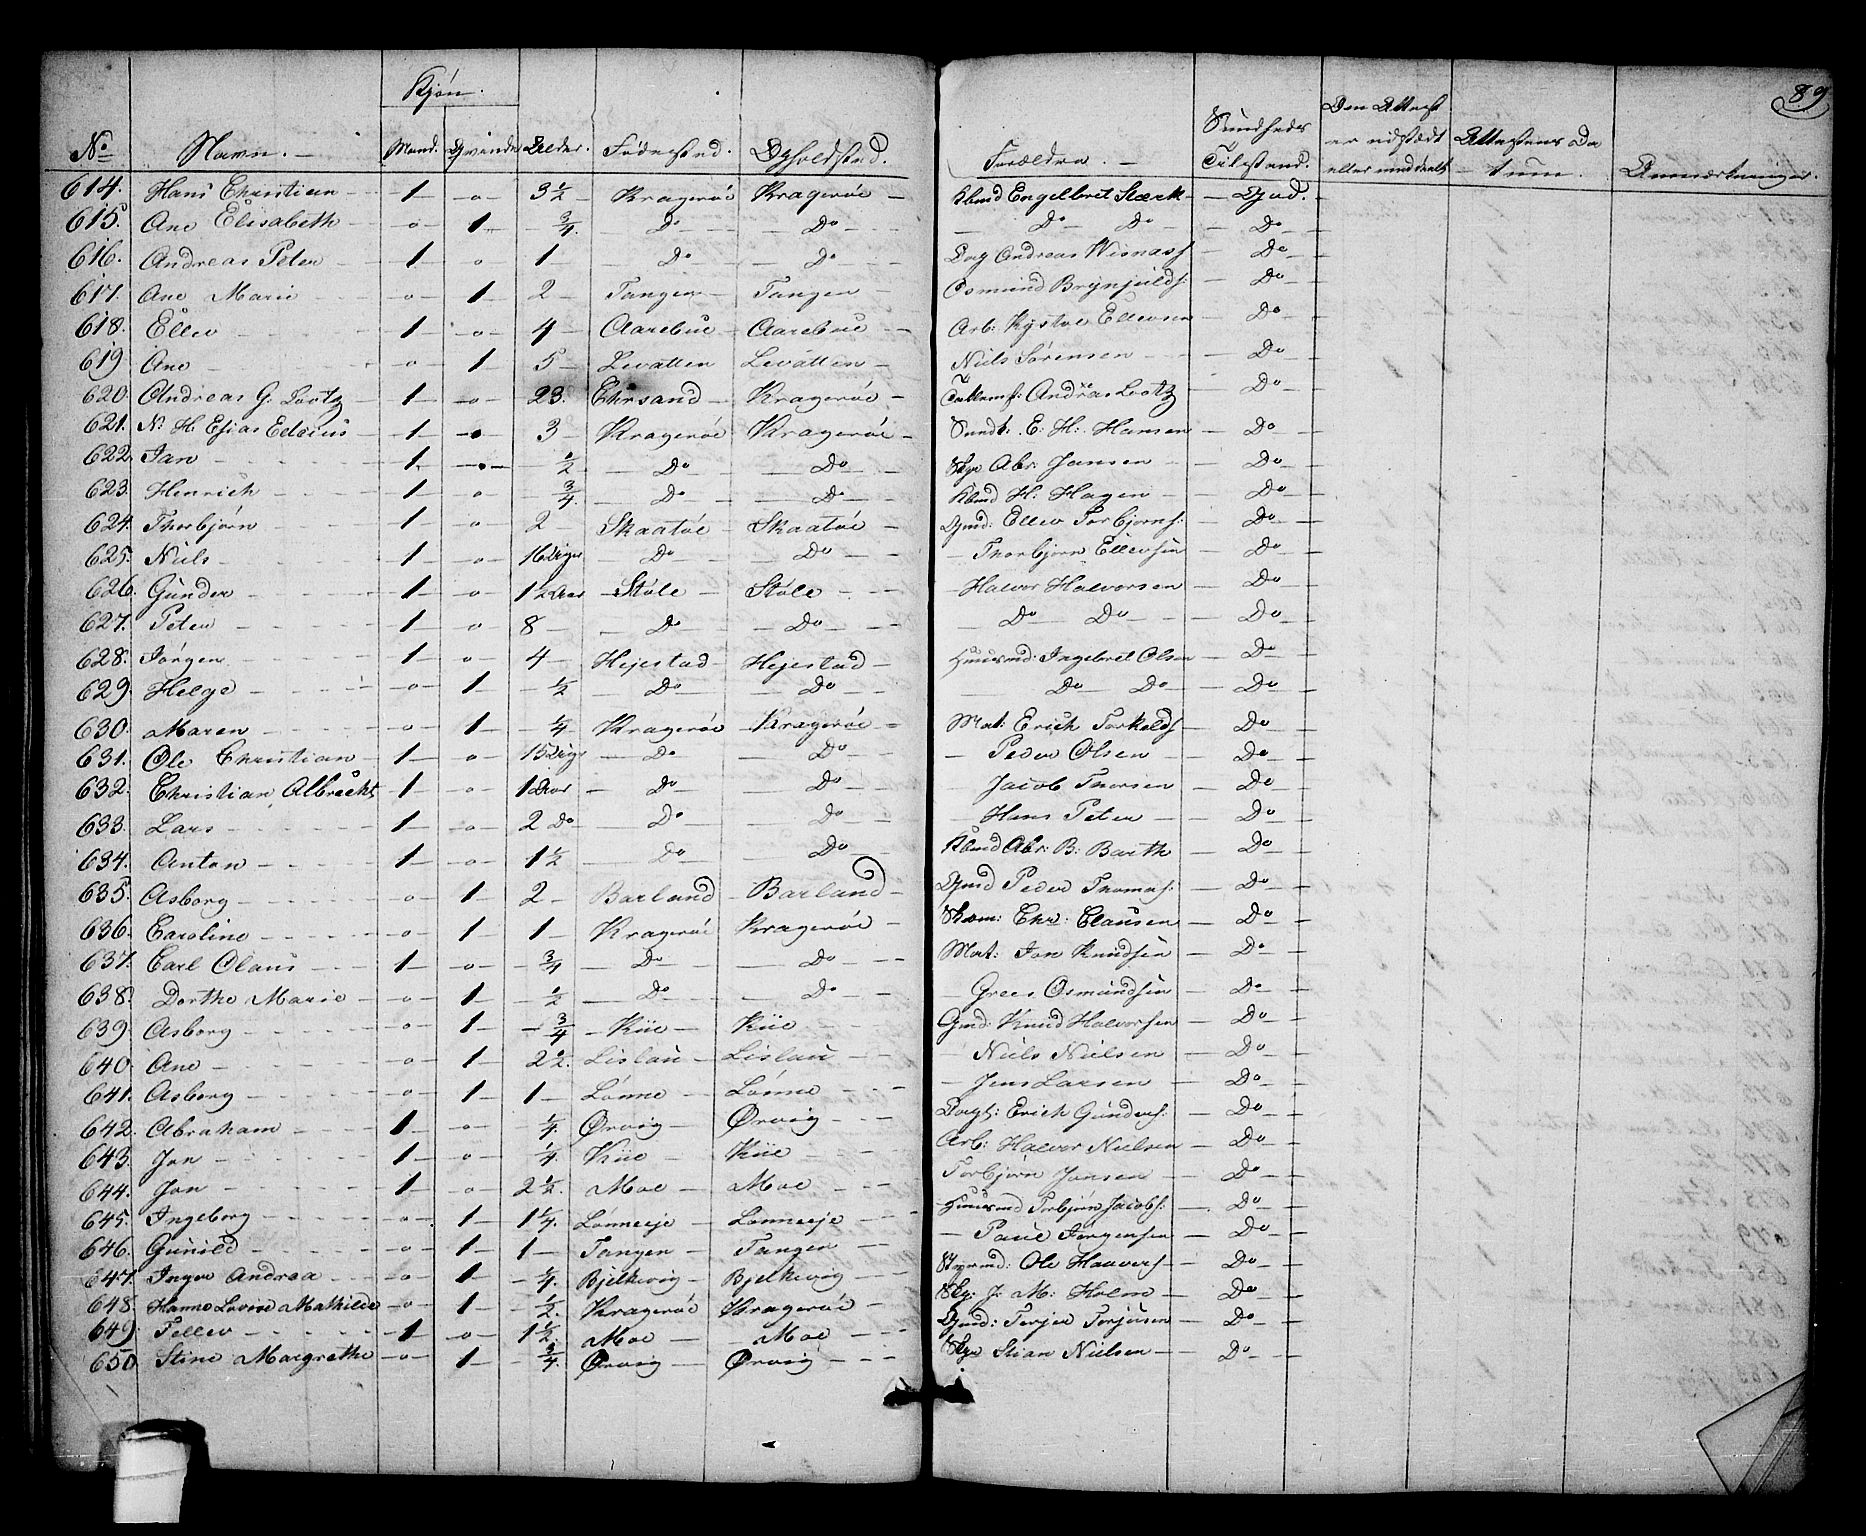 89
Kjøn.
No Navn. Mand. Qvinde Alder. Fødested. Opholdsted. Forældre. Sundheds Tilstand. Den Attest er udstædt eller meddeelt Attestens Datum. Anmærkninger.
614. Hans Christian 1 o 3½ Kragerøe Kragerøe Kbmd Engelbret Stærk God.
615. Ane Elisabeth o 1 ¾. Do Do Do Do Do
616. Andreas Peter 1 o 1 Do Do Dag Andreas Do
617. Ane Marie o 1 2 Tangen Tangen Osmund Brynjulds: Do
618. Ellev 1 o 4 Aarebue Aarebue Arb: Kystol Ellevsen Do
619 Ane o 1 5 Levatten Levatten Niels Sørensen Do
620. Andreas G. Lootz 1 o 23. Chrsand Kragerøe Andreas Lootz Do
621. N: H. Esias Edesius 1 o 3 Kragerøe Kragerøe E: H: Hansen Do
622 Jan 1 o ½ Do Do Skpr Abr: Jansen Do
623. Henrich 1 o ¾. Do Do Kbmd H: Hagen Do
624. Thorbjørn 1 o 2 Skaatøe Skaatøe Gmd: Ellev Torbjørns: Do
625. Niels 1 o 16 Uger Do Do Thorbjørn Ellevsen Do
626. Gunder 1 o 1½ Aar Støle Støle Halvor Halvorsen Do
627. Peter 1 o 8 Do Do Do Do Do
628. Jørgen 1 o 4 Hejestad Hejestad Huusmd: Ingebret Olsen Do
629. Helge o 1 ½ Do Do Do Do Do
630. Maren o 1 ¼ Kragerøe Kragerøe Mat: Erich Torkelds Do
631. Ole Christian 1 o 15 Uger Do Do Peder Olsen Do
632. Christian Albrecht 1 o 1 Aar Do Do Jacob Thorsen Do
633. Lars 1 o 2 Do Do Do Hans Peter Do
634. Anton 1 o 1½ Do Do Kbmd Abr: B: Barth Do
635. Asborg o 1 2 Barland Barland Gmd Peder Thomas: Do
636. Caroline o 1 1 Kragerøe Kragerøe Skom: Chr: Clausen Do
637. Carl Olaus 1 o ¾ Do Do Mat: Jon Knudsen Do
638. Dorthe Marie o 1 ½ Do Do Grees Osmundsen Do
639. Asborg o 1 ¾ Kiie Kiie Gmd: Knud Halvorsen Do
640. Ane o 1 2½. Lislau Lislau Niels Nielsen Do
641. Asborg o 1 1 Lønne Lønne Jens Larsen Do
642. Abraham 1 o ¼. Ørvig Ørvig Dagl: Erich Gunders: Do
643. Jon 1 o ¼. Kiie Kiie Arb: Halvor Nielsen Do
644. Jon 1 o 2½. Moe Moe Torbjørn Jansen Do
645. Ingeborg o 1 1¼. Lønneeje Lønneeje Huusmd Torbjørn Jacobs: Do
646. Gunild o 1 1 Tangen Tangen Paul Jørgensen Do
647. Inger Andrea o 1 ¼. Bjelkevig Bjelkevig Ole Haavers: Do
648. Hanne Lovise Mathilde o 1 ½. Kragerøe Kragerøe Skp: J. M: Holm Do
649. Tellev 1 o 1½. Moe Moe Gmd: Terjer Torjusen Do
650 Stine Margrethe o 1 ¾. Ørvig Ørvig Skpr Stian Nielsen Do